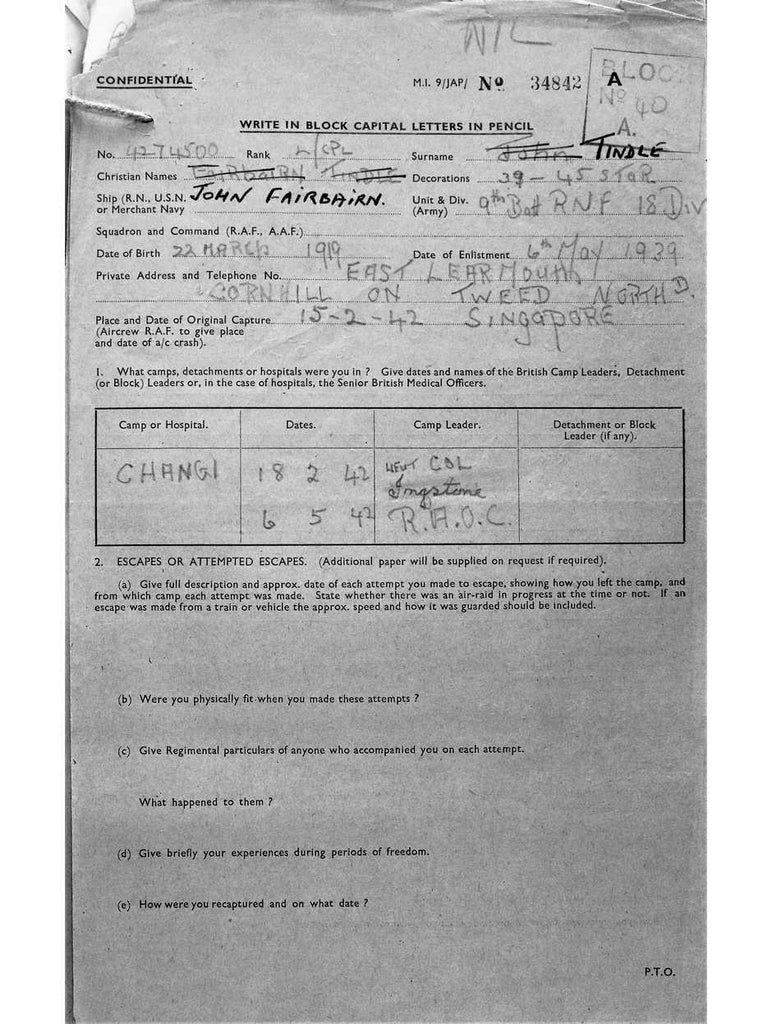 NIL
CONFIDENTIAL
M.I. 9/JAP/ No 34842 A
BLOCK
No 40
A.
WRITE IN BLOCK CAPITAL LETTERS IN PENCIL
No. 4274500 Rank L/CPL Surname John TINDLE
Christian Names FAIRBAIRN TINDLE Decorations 39-45 STAR
Ship (R.N., U.S.N. JOHN FAIRBAIRN. Unit & Div. 9th Batt RNF 18 Div
or Merchant Navy (Army)
Squadron and Command (R.A.F., A.A.F.)
Date of Birth 22 MARCH 1919 Date of Enlistment 6th May 1939
Private Address and Telephone No. EAST LEARMOUTH
CORNHILL ON TWEED NORTHD.
Place and Date of Original Capture 15-2-42 SINGAPORE
(Aircrew R.A.F. to give place
and date of a/c crash).
1. What camps, detachments or hospitals were you in ? Give dates and names of the British Camp Leaders, Detachment
(or Block) Leaders or, in the case of hospitals, the Senior British Medical Officers.
Camp or Hospital. Dates. Camp Leader. Detachment or Block
Leader (if any).
CHANGI 18 2 42 LIEUT COL
6 5 42 R.A.O.C.
2. ESCAPES OR ATTEMPTED ESCAPES. (Additional paper will be supplied on request if required).
(a) Give full description and approx. date of each attempt you made to escape, showing how you left the camp, and
from which camp each attempt was made. State whether there was an air-raid in progress at the time or not. If an
escape was made from a train or vehicle the approx. speed and how it was guarded should be included.
(b) Were you physically fit when you made these attempts ?
(c) Give Regimental particulars of anyone who accompanied you on each attempt.
What happened to them ?
(d) Give briefly your experiences during periods of freedom.
(e) How were you recaptured and on what date ?
P.T.O.